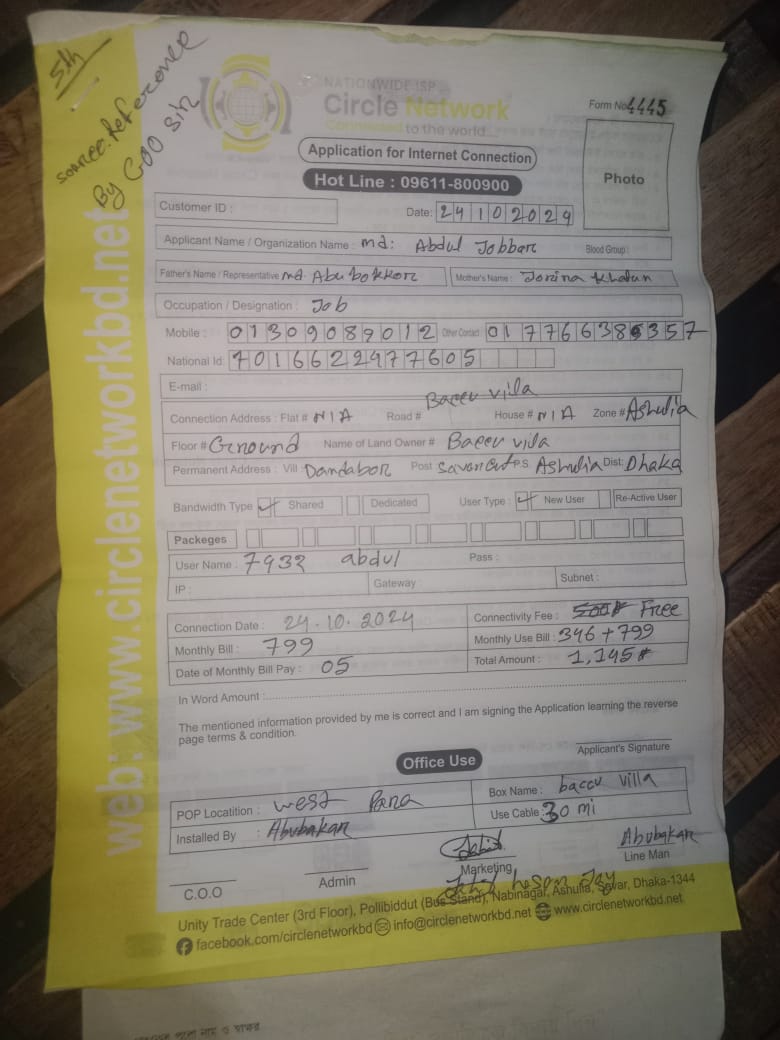 5th
source. Reference
By COO sir
NATIONWIDE ISP
Circle Network
Connected to the world...
Form No 4445
Application for Internet Connection
Hot Line : 09611-800900
Photo
Customer ID :
Date: 24102024
Applicant Name / Organization Name : md: Abdul Jobbar
Blood Group :
Father's Name / Representative md. Abubokkor
Mother's Name : Jorina Khatun
Occupation / Designation : Job
Mobile : 01309089012 Other Contact 01776638 357
National Id: 7016622977605
E-mail :
Connection Address : Flat # N/A Road # Baccu villa House # N/A Zone # Ashulia
Floor # Ground Name of Land Owner # Baccu villa
Permanent Address : Vill Dandabor Post Savar P.S Ashulia Dist: Dhaka
Bandwidth Type ✓ Shared Dedicated User Type : ✓ New User Re-Active User
Packeges
User Name : 7932 abdul Pass :
IP : Gateway : Subnet :
Connection Date : 24.10.2024 Connectivity Fee : 500 Free
Monthly Bill : 799 Monthly Use Bill : 346 + 799
Date of Monthly Bill Pay : 05 Total Amount : 1,145
In Word Amount :
The mentioned information provided by me is correct and I am signing the Application learning the reverse
page terms & condition.
Applicant's Signature
Office Use
POP Locatition : west Para Box Name : baccu villa
Installed By : Abubakar Use Cable : 30 mi
Abubakar
C.O.O Admin Marketing Line Man
Unity Trade Center (3rd Floor), Pollibiddut (Bus Stand), Nabinagar, Ashulia, Savar, Dhaka-1344
facebook.com/circlenetworkbd info@circlenetworkbd.net www.circlenetworkbd.net
web: www.circlenetworkbd.net